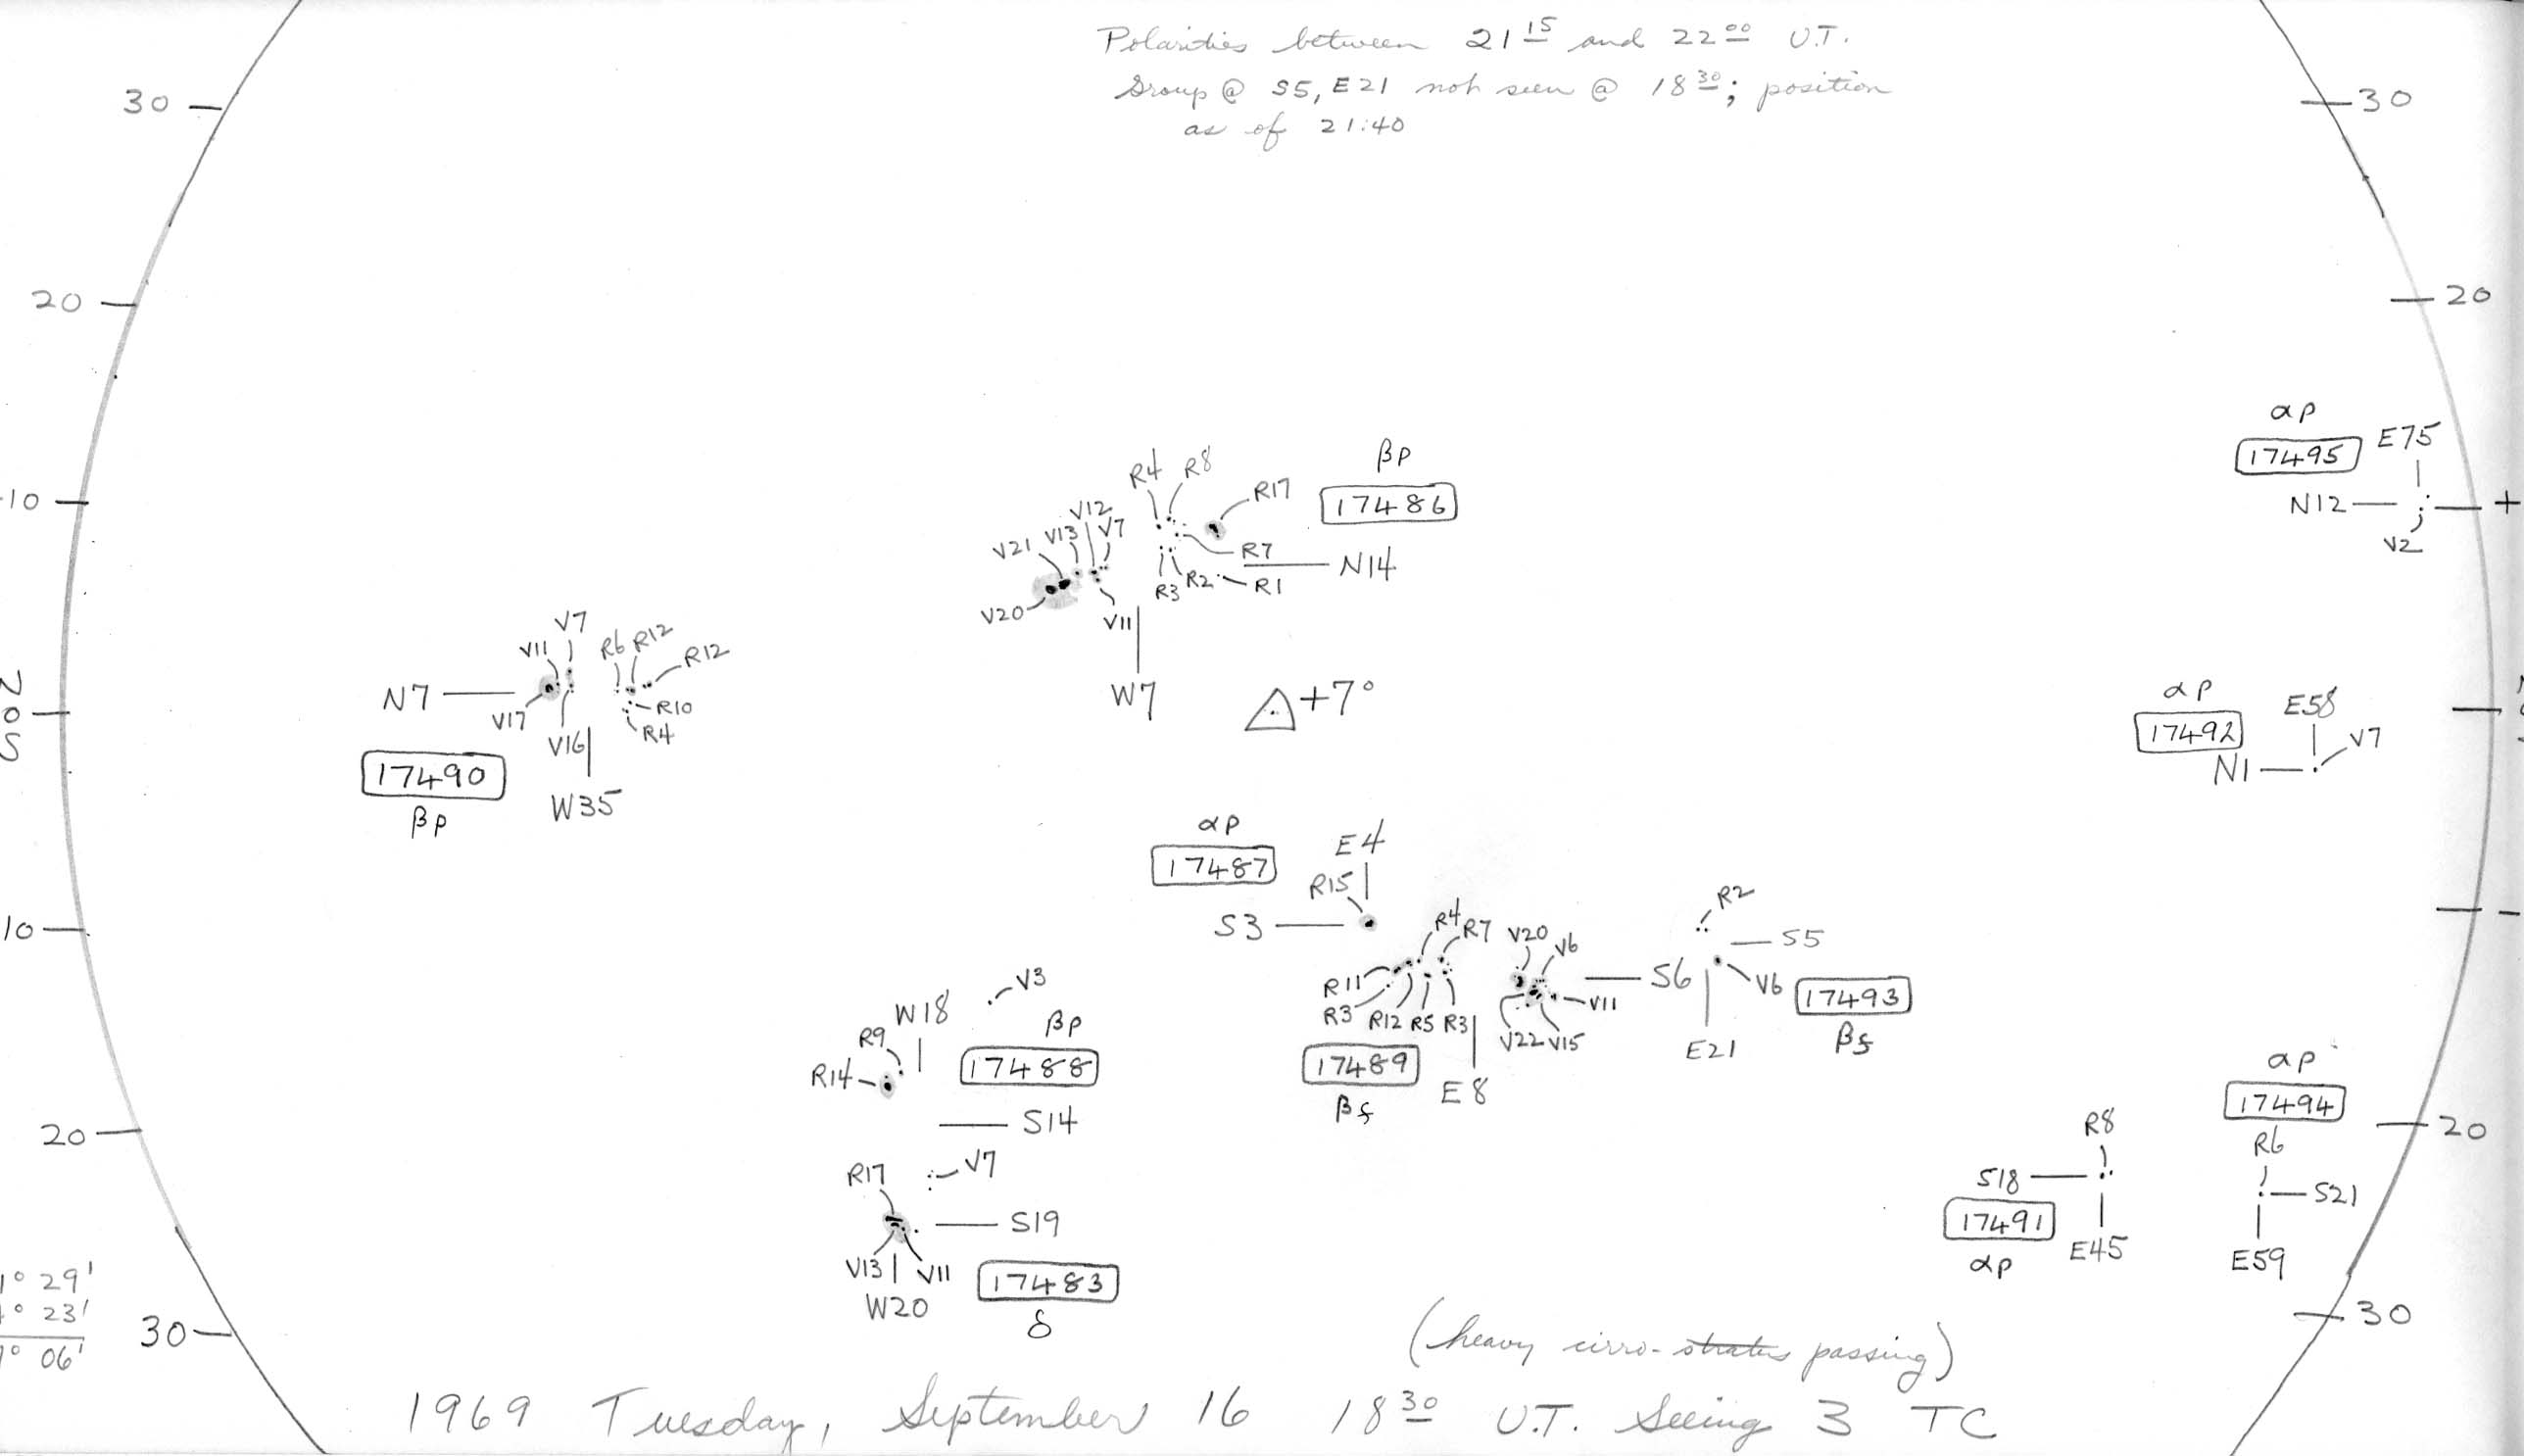 Polarities between 21 15 and 22 00 U.T.
Group @ S5, E21 not seen @ 18 30; position
as of 21:40
30
30
20
20
10
10
N
0
S
10
20
20
30
30
αp
17495
E75
N12
V2
+
βp
17486
R4
R8
R17
V12
V13
V7
V21
V20
V11
R7
R3
R2
R1
N14
W7
+7°
V7
V11
R6
R12
R12
N7
V17
R10
R4
V16
17490
βp
W35
αp
17492
E58
V7
N1
αp
17487
E4
R15
S3
R4
R7
V20
V6
R11
R3
R12
R5
R3
S6
V11
V22
V15
17489
βf
E8
R2
S5
V6
17493
βf
E21
V3
W18
βp
R9
17488
R14
S14
V7
R17
S19
V13
V11
W20
17483
δ
R8
S18
17491
αp
E45
αp
17494
R6
S21
E59
-
1° 29'
° 23'
° 06'
(heavy cirro-stratus passing)
1969 Tuesday, September 16 18 30 U.T. Seeing 3 TC